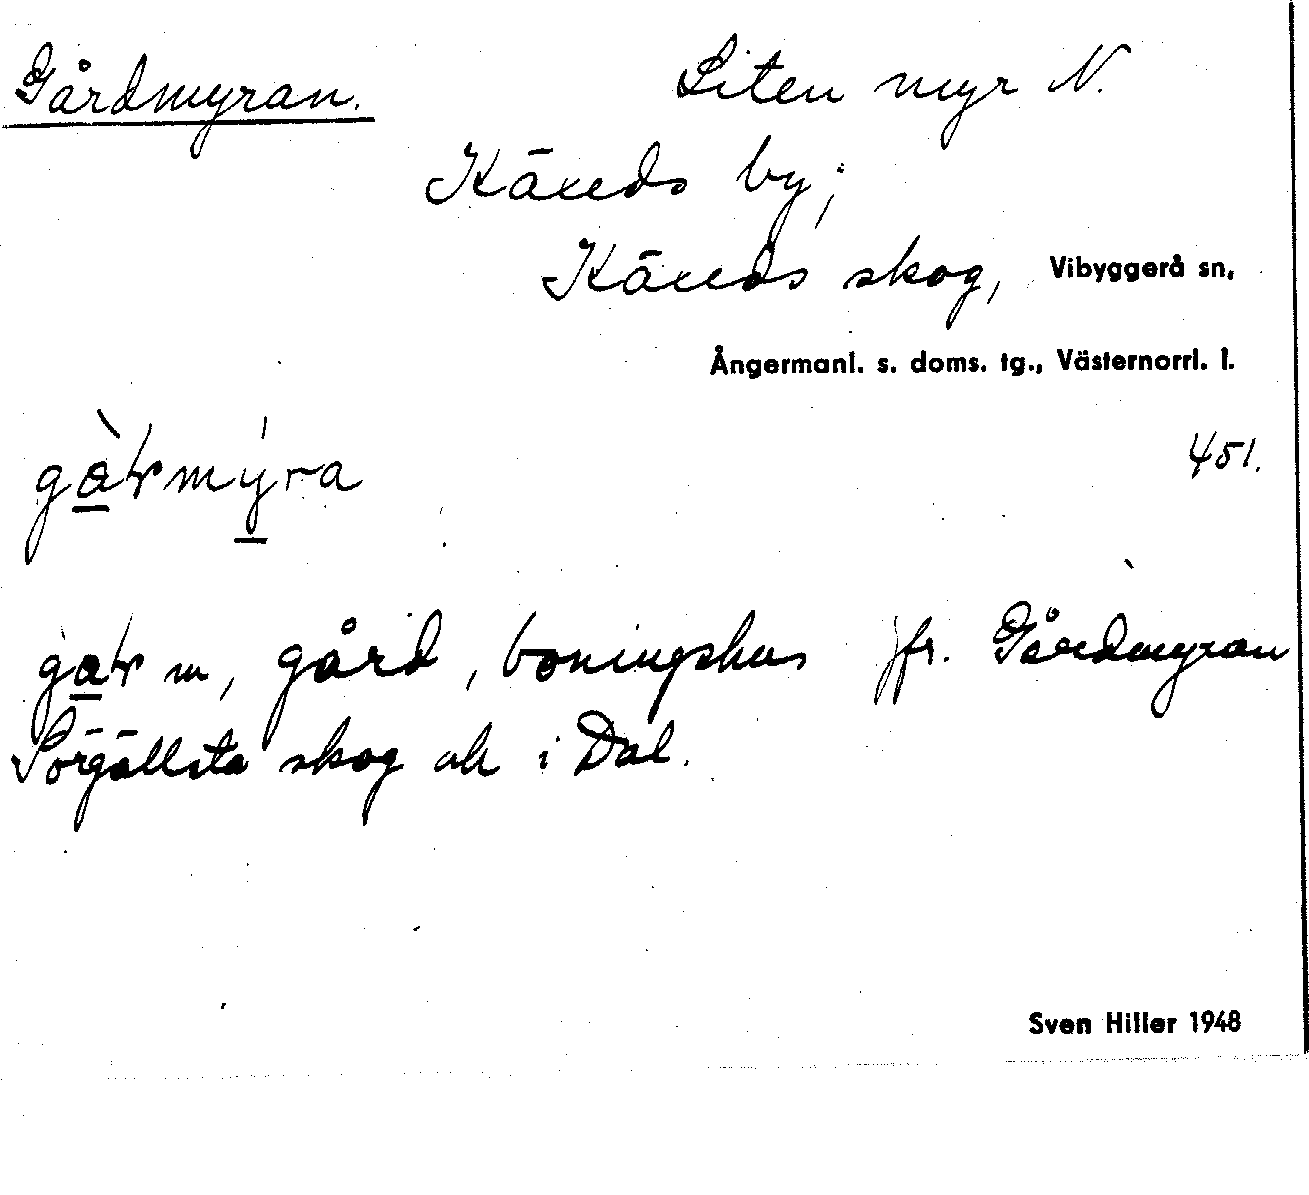 Gårdmyran. Liten myr N.
Käxeds by;
Käxeds skog, Vibyggerå sn,
Ångermanl. s. doms. tg., Västernorrl. l.
451.
m, gård, boningshus jfr. Gårdmyran
Sörgällsta skog ok i Dal.
Sven Hiller 1948